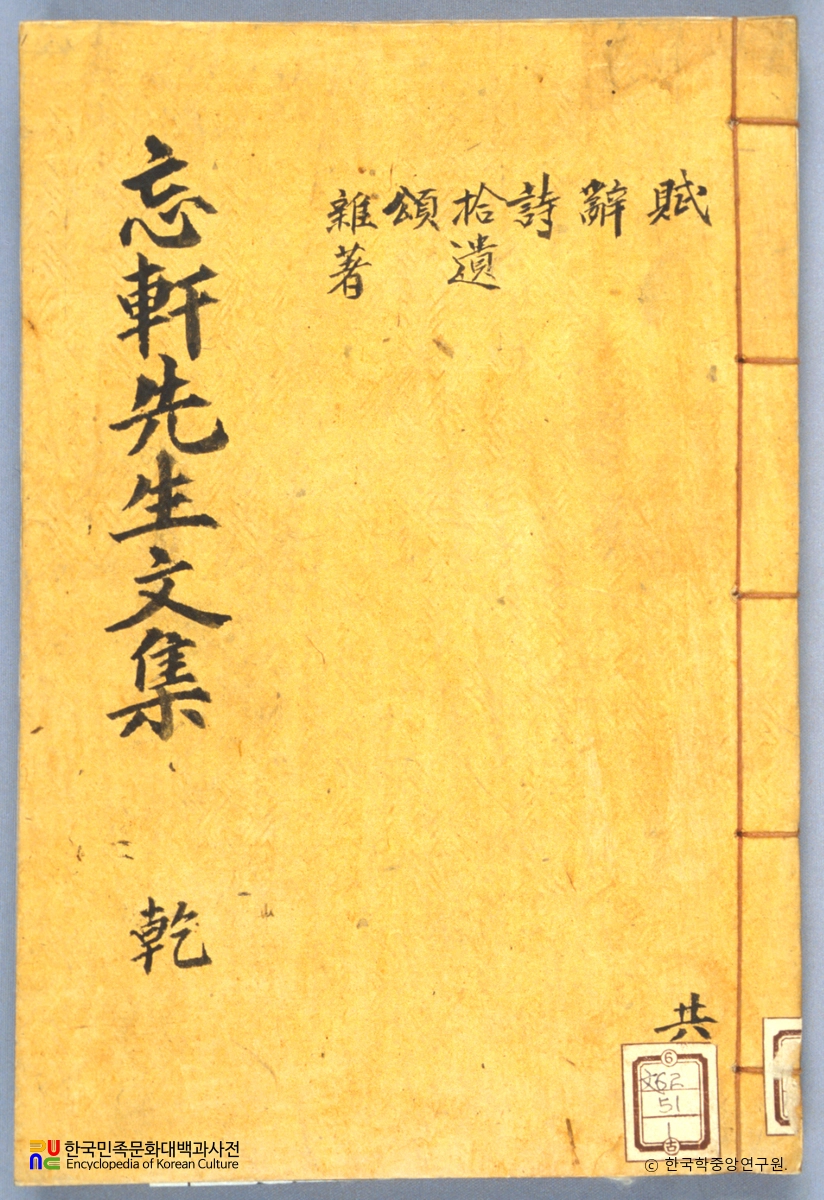 賦
辭
詩
拾遺
頌
雜著
忘軒先生文集 乾
共
6
51
1
古
한국민족문화대백과사전
Encyclopedia of Korean Culture
© 한국학중앙연구원.